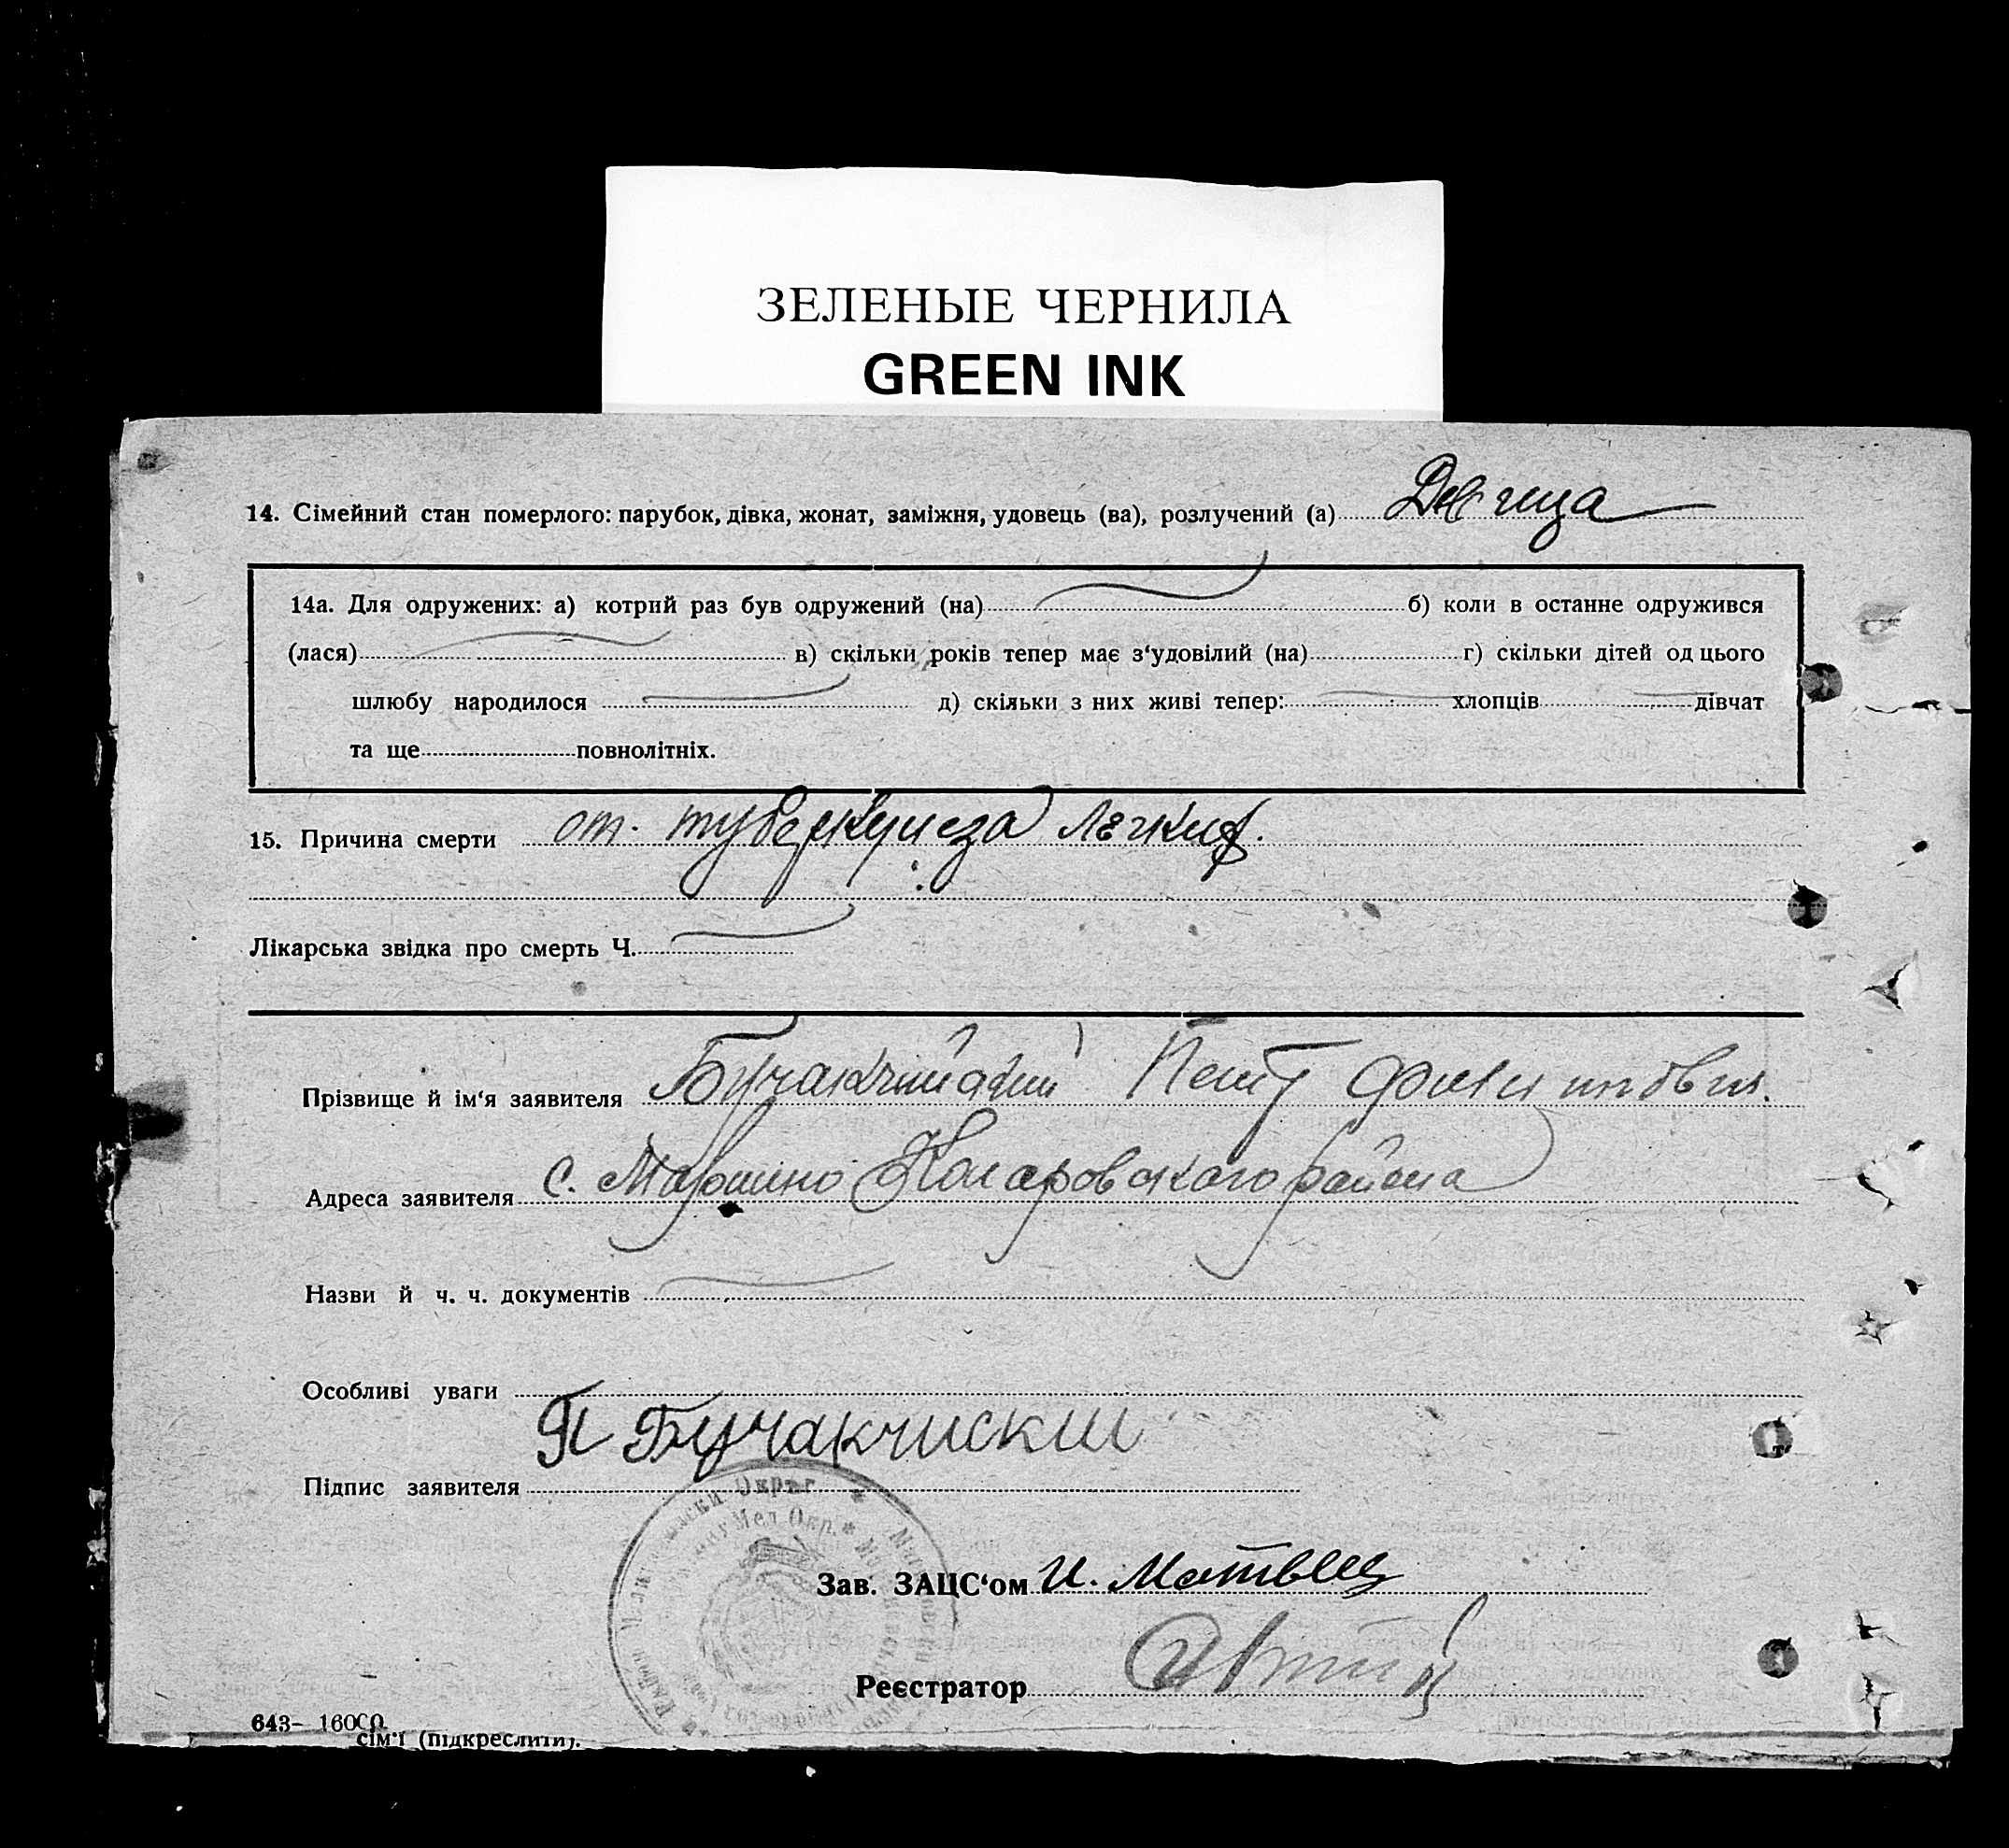 ЗЕЛЕНЫЕ ЧЕРНИЛА
GREEN INK
14. Сімейний стан померлого: парубок, дівка, жонат, заміжня, удовець (ва), розлучений (а) Девица
14а. Для одружених: а) котрий раз був одружений (на) б) коли в останне одружився
(лася) в) скільки років тепер має з‘удовілий (на) г) скільки дітей од цього
шлюбу народилося д) скільки з них живі тепер: хлопців дівчат
та ще повнолітніх.
15. Причина смерти от туберкулеза легких.
Лікарська звідка про смерть Ч.
Прізвище й ім‘я заявителя Бучакчийский Петр
Адреса заявителя с. Марошино района
Назви й ч. ч. документів
Особливі уваги
П Бучакчиский
Підпис заявителя
Округ
Мел. Окр.
Зав. ЗАЦС‘ом И.
Реєстратор
643– 16000.
сім‘ї (підкреслити).